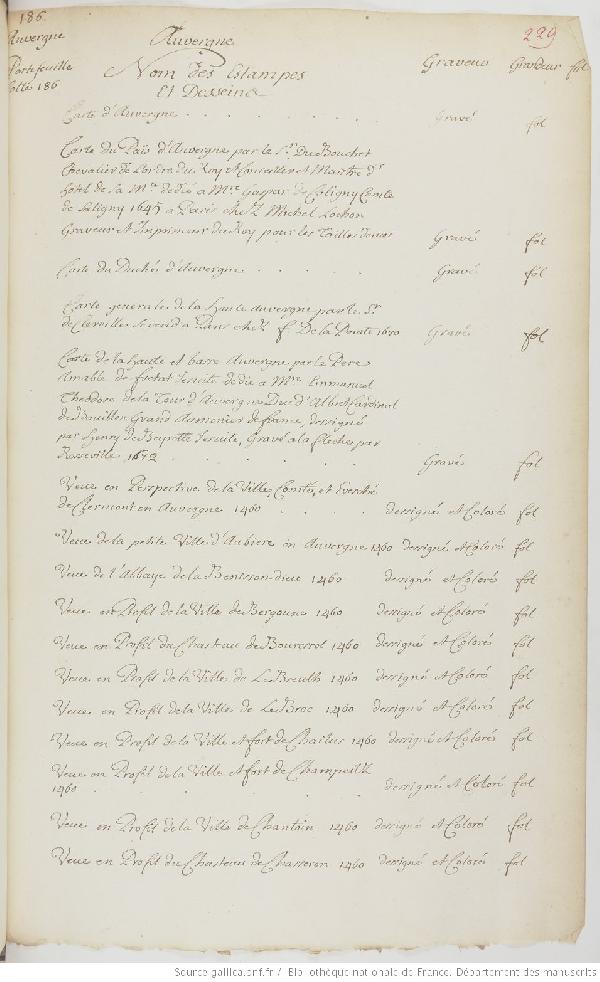 186.
Auvergne
Portefeuille
Cotté 186
Auvergne
229
Nom des Estampes
Et Desseins
Graveur
Grandeur
fol
Carte d'Auvergne . . . . . . . Gravé fol
Carte du Païs d'Auvergne par le Sr. Du Bouchet
Chevalier de l'ordre du Roy et Conseiller et Maistre d'
hotel de sa Mté dedié a Mre Gaspar de Coligny Comte
de Saligny 1645 a Paris chez Michel Lochon
Graveur et Imprimeur du Roy pour les Tailles douces Gravé fol
Carte du Duché d'Auvergne . . . . Gravé fol
Carte generale de la haute auvergne par le Sr.
de Clerville se vend a Paris chez De la Pointe 1670 Gravé fol
Carte de la haute et basse Auvergne par le Pere
Amable de fretat Jesuite dedié a Mre Emmanuel
Theodore de la Tour d'Auvergne Duc d'Albret Cardinal
de Bouillon Grand Aumonier de france, dessigné
par Henry Jesuite, Gravé a la fleche par
1672 . . . . . Gravé fol
Veue en Perspective de la Ville, Comté, et Evesché
de Clermont en Auvergne 1460 . . . . dessigné et Coloré fol
Veue de la petite Ville d'Aubiere en Auvergne 1460 dessigné et Coloré fol
Veue de l'Abbaye de la Benisson-dieu 1460 dessigné et Coloré fol
Veue en Profil de la Ville de Bergoune 1460 dessigné et Coloré fol
Veue en Profil du Chasteau de 1460 dessigné et Coloré fol
Veue en Profil de la Ville de Le Breulh 1460 dessigné et Coloré fol
Veue en Profil de la Ville de Le Broc 1460 dessigné et Coloré fol
Veue en Profil de la Ville et fort de 1460 dessigné et Coloré fol
Veue en Profil de la Ville et fort de
1460 . . . . dessigné et Coloré fol
Veue en Profil de la Ville de Chantoin 1460 dessigné et Coloré fol
Veue en Profil du Chasteau de 1460 dessigné et Coloré fol
Source gallica.bnf.fr / Bibliothèque nationale de France. Département des manuscrits